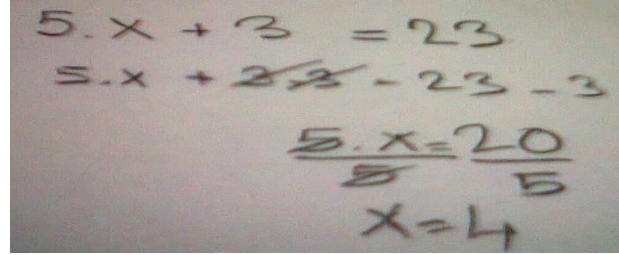 5.x + 3 = 23
5.x + 3-3 = 23 - 3
5.x = 20
5 5
x = 4